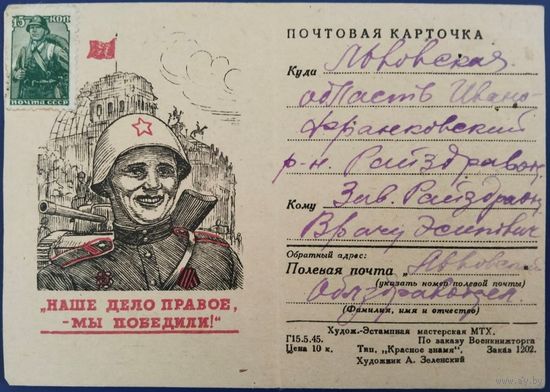 15 КОП
ПОЧТА СССР
„НАШЕ ДЕЛО ПРАВОЕ,
- МЫ ПОБЕДИЛИ!“
ПОЧТОВАЯ КАРТОЧКА
Куда Львовская
область Ивано-
Франковский
р-н. Райздравот.
Кому Зав. Райздрав
Врачу
Обратный адрес:
Полевая почта „Львовский
(указать номер полевой почты)
Облздравотдел.
(Фамилия, имя и отчество)
Худож.-Эстампная мастерская МТХ.
Г15.5.45. По заказу Военкнижторга
Цена 10 к. Тип. „Красное знамя“. Заказ 1202.
Художник А. Зеленский
ay.by